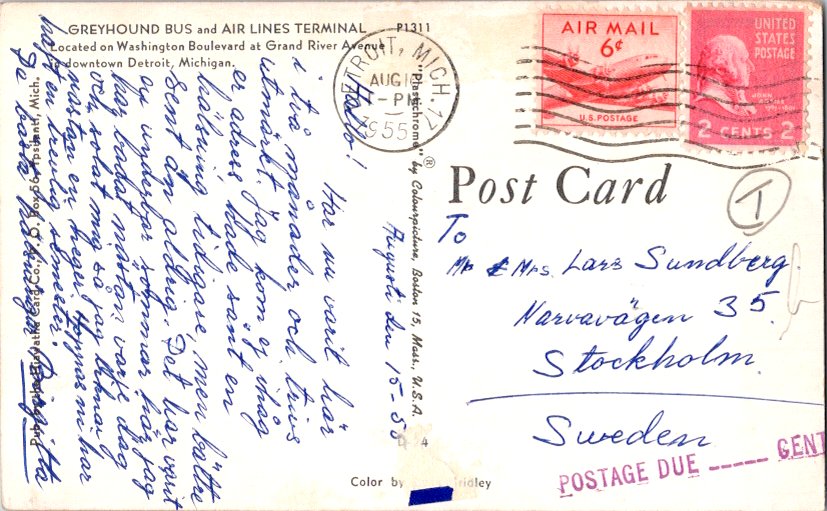 GREYHOUND BUS and AIR LINES TERMINAL P1311
Located on Washington Boulevard at Grand River Avenue
in downtown Detroit, Michigan.
DETROIT, MICH. 17
AUG 16
-PM
1955
AIR MAIL
6¢
U.S. POSTAGE
UNITED
STATES
POSTAGE
JOHN
2 CENTS 2
Post Card
T
To
Mr & Mrs. Lars Sundberg.
Narvavägen 35.
Stockholm.
Sweden
POSTAGE DUE ----- CENT
"Plastichrome" ® by Colourpicture, Boston 15, Mass., U.S.A.
Augusti den 15-55
Hallo!
Har nu varit här
i två månader och trivs
utmärkt. Jag kom ej ihåg
er adress hade sänt en
hälsning tidigare, men bättre
sent än aldrig. Det har varit
en underbar sommar här, jag
har badat nästan varje dag
och solat mig så jag liknar
nästan en neger. Hoppas ni har
haft en trevlig semester.
De bästa hälsningar Birgitta
Pub. by Hiawatha Card Co., P. O. Box 56, Ypsilanti, Mich.
Color by